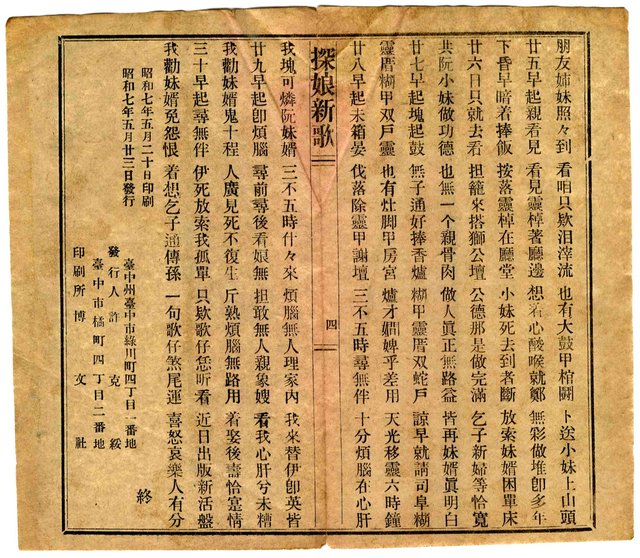 朋友姉妹照々到 看咱只欵泪滓流 也有大鼓甲棺鬪 卜送小妹上山頭
廿五早起親看見 看見靈棹著廳邊 想着心酸喉就鄭 無彩做堆卽多年
下昏早暗着捧飯 按落靈棹在廳堂 小妹死去到者斷 放索妹婿困單床
廿六日只就去看 担籠來搭獅公壇 公德那是做完滿 乞子新婦等恰寬
共阮小妹做功德 也無一个親骨肉 做人眞正無路益 皆再妹婿眞明白
廿七早起塊起鼓 無子通好捧香爐 糊甲靈厝双蛇戸 諒早就請司阜糊
靈厝糊甲双戸靈 也有灶脚甲房宮 爐才嫺婢乎差用 天光移靈六時鐘
廿八早起未箱晏 伐落除靈甲謝壇 三不五時尋無伴 十分煩腦在心肝
探娘新歌
四
我塊可憐阮妹婿 三不五時什々來 煩腦無人理家內 我來替伊卽英皆
廿九早起卽煩腦 尋前尋後看娘無 担敢無人親象嫂 看我心肝兮未糟
我勸妹婿鬼十程 人廣見死不復生 斤熟煩腦無路用 着娶後壽恰寔情
三十早起尋無伴 伊死放索我孤單 只欵歌仔恁听看 近日出版新活盤
我勸妹婿免怨恨 着想乞子通傳孫 一句歌仔煞尾運 喜怒哀樂人有分
終
昭和七年五月二十日印刷
昭和七年五月廿三日發行
臺中州臺中市綠川町四丁目一番地
發行人 許克綏
臺中市橘町四丁目二番地
印刷所 博文社